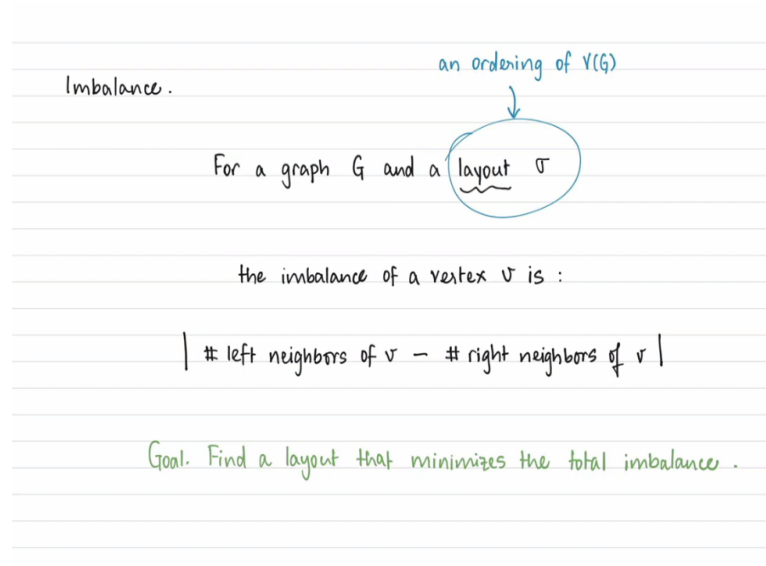 an ordering of V(G)
Imbalance.
For a graph G and a layout σ
the imbalance of a vertex v is :
| # left neighbors of v - # right neighbors of v |
Goal. Find a layout that minimizes the total imbalance.